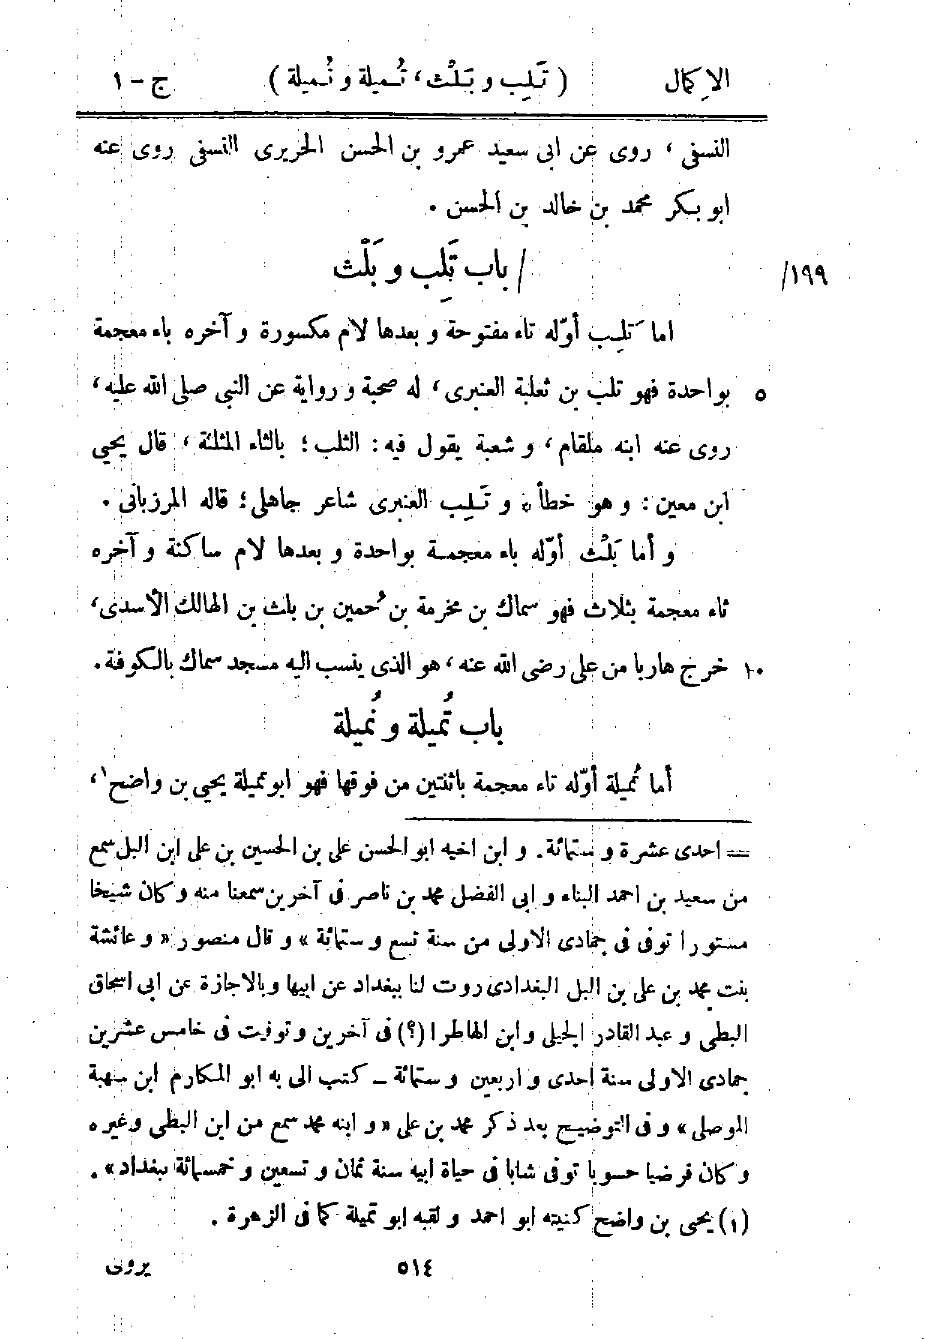 الإكمال ( تَلِب و بَلْث ، تُميلة و نُميلة ) ج - ١
النسفى ، روى عن ابى سعيد عمرو بن الحسن الحريرى النسفى روى عنه
ابو بكر محمد بن خالد بن الحسن .
١٩٩/ / باب تَلِب و بَلْث
اما تَلِب أوّله تاء مفتوحة و بعدها لام مكسورة و آخره باء معجمة
٥ بواحدة فهو تلب بن ثعلبة العنبرى ، له صحبة و رواية عن النبى صلى الله عليه ،
روى عنه ابنه ملقام ، و شعبة يقول فيه : الثلب ؛ بالثاء المثلثة ، قال يحيى
ابن معين : و هو خطأ ، و تَلِب العنبرى شاعر جاهلى ؛ قاله المرزبانى .
و أما بَلْث أوّله باء معجمة بواحدة و بعدها لام ساكنة و آخره
ثاء معجمة بثلاث فهو سماك بن مخرمة بن حُمين بن بلث بن الهالك الأسدى ،
١٠ خرج هاربا من على رضى الله عنه ، هو الذى ينسب اليه مسجد سماك بالكوفة .
باب تُميلة و نُميلة
أما تُميلة أوّله تاء معجمة باثنتين من فوقها فهو ابو تميلة يحيى بن واضح ١ ،
= احدى عشرة و ستمائة . و ابن اخيه ابو الحسن على بن الحسين بن على ابن البل سمع
من سعيد بن احمد البناء و ابى الفضل محمد بن ناصر فى آخرين سمعنا منه و كان شيخا
مستورا توفى فى جمادى الاولى من سنة تسع و ستمائة » و قال منصور « و عائشة
بنت محمد بن على بن البل البغدادى روت لنا ببغداد عن ابيها و بالاجازة عن ابى اسحاق
البطى و عبد القادر الجيلى و ابن الهاطرا (؟) فى آخرين و توفيت فى خامس عشرين
جمادى الاولى سنة احدى و اربعين و ستمائة - كتب الى به ابو المكارم ابن
الموصلى » و فى التوضيح بعد ذكر محمد بن على « و ابنه محمد سمع من ابن البطى وغيره
و كان فرضيا حسوبا توفى شابا فى حياة ابيه سنة ثمان و تسعين و خمسمائة ببغداد » .
(١) يحيى بن واضح كنيته ابو احمد و لقبه ابو تميلة كما فى الزهرة .
٥١٤ يروى